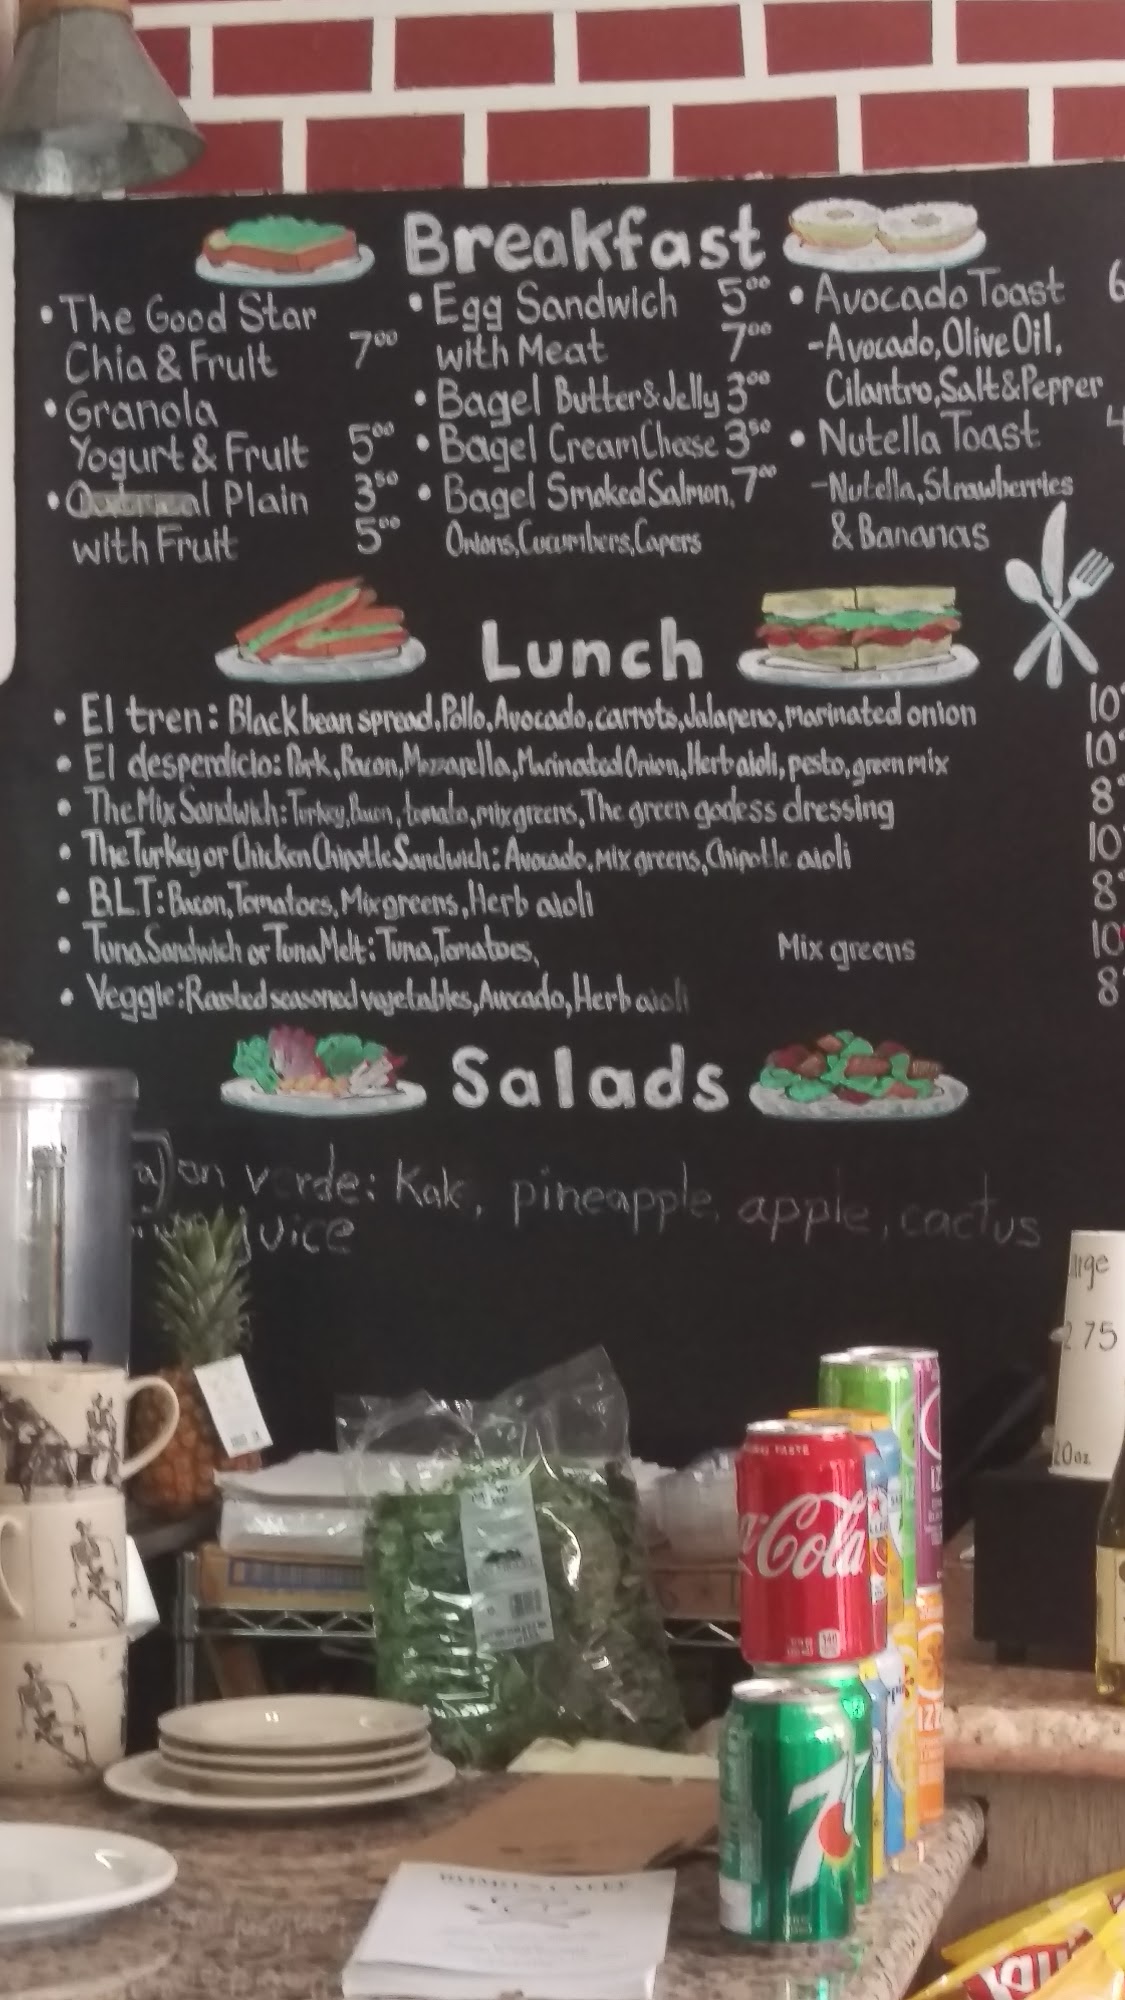 Breakfast
• The Good Star
Chia & Fruit 7⁰⁰
• Granola
Yogurt & Fruit 5⁰⁰
• Oatmeal Plain 3⁵⁰
with Fruit 5⁰⁰
• Egg Sandwich 5⁰⁰
with Meat 7⁰⁰
• Bagel Butter & Jelly 3⁰⁰
• Bagel Cream Cheese 3⁵⁰
• Bagel Smoked Salmon, 7⁰⁰
Onions, Cucumbers, Capers
• Avocado Toast 6
-Avocado, Olive Oil,
Cilantro, Salt & Pepper
• Nutella Toast 4
-Nutella, Strawberries
& Bananas
Lunch
• El tren: Black bean spread, Pollo, Avocado, carrots, Jalapeno, marinated onion 10
• El desperdicio: Pork, Bacon, Mozzarella, Marinated Onion, Herb aioli, pesto, green mix 10
• The Mix Sandwich: Turkey, Bacon, tomato, mix greens, The green godess dressing 8
• The Turkey or Chicken Chipotle Sandwich: Avocado, mix greens, Chipotle aioli 10
• B.L.T: Bacon, Tomatoes, Mix greens, Herb aioli 8
• Tuna Sandwich or Tuna Melt: Tuna, Tomatoes, Mix greens 10
• Veggie: Roasted seasoned vegetables, Avocado, Herb aioli 8
Salads
verde: Kale, pineapple, apple, cactus
juice
2 75
20oz
Cola
7
IZZ